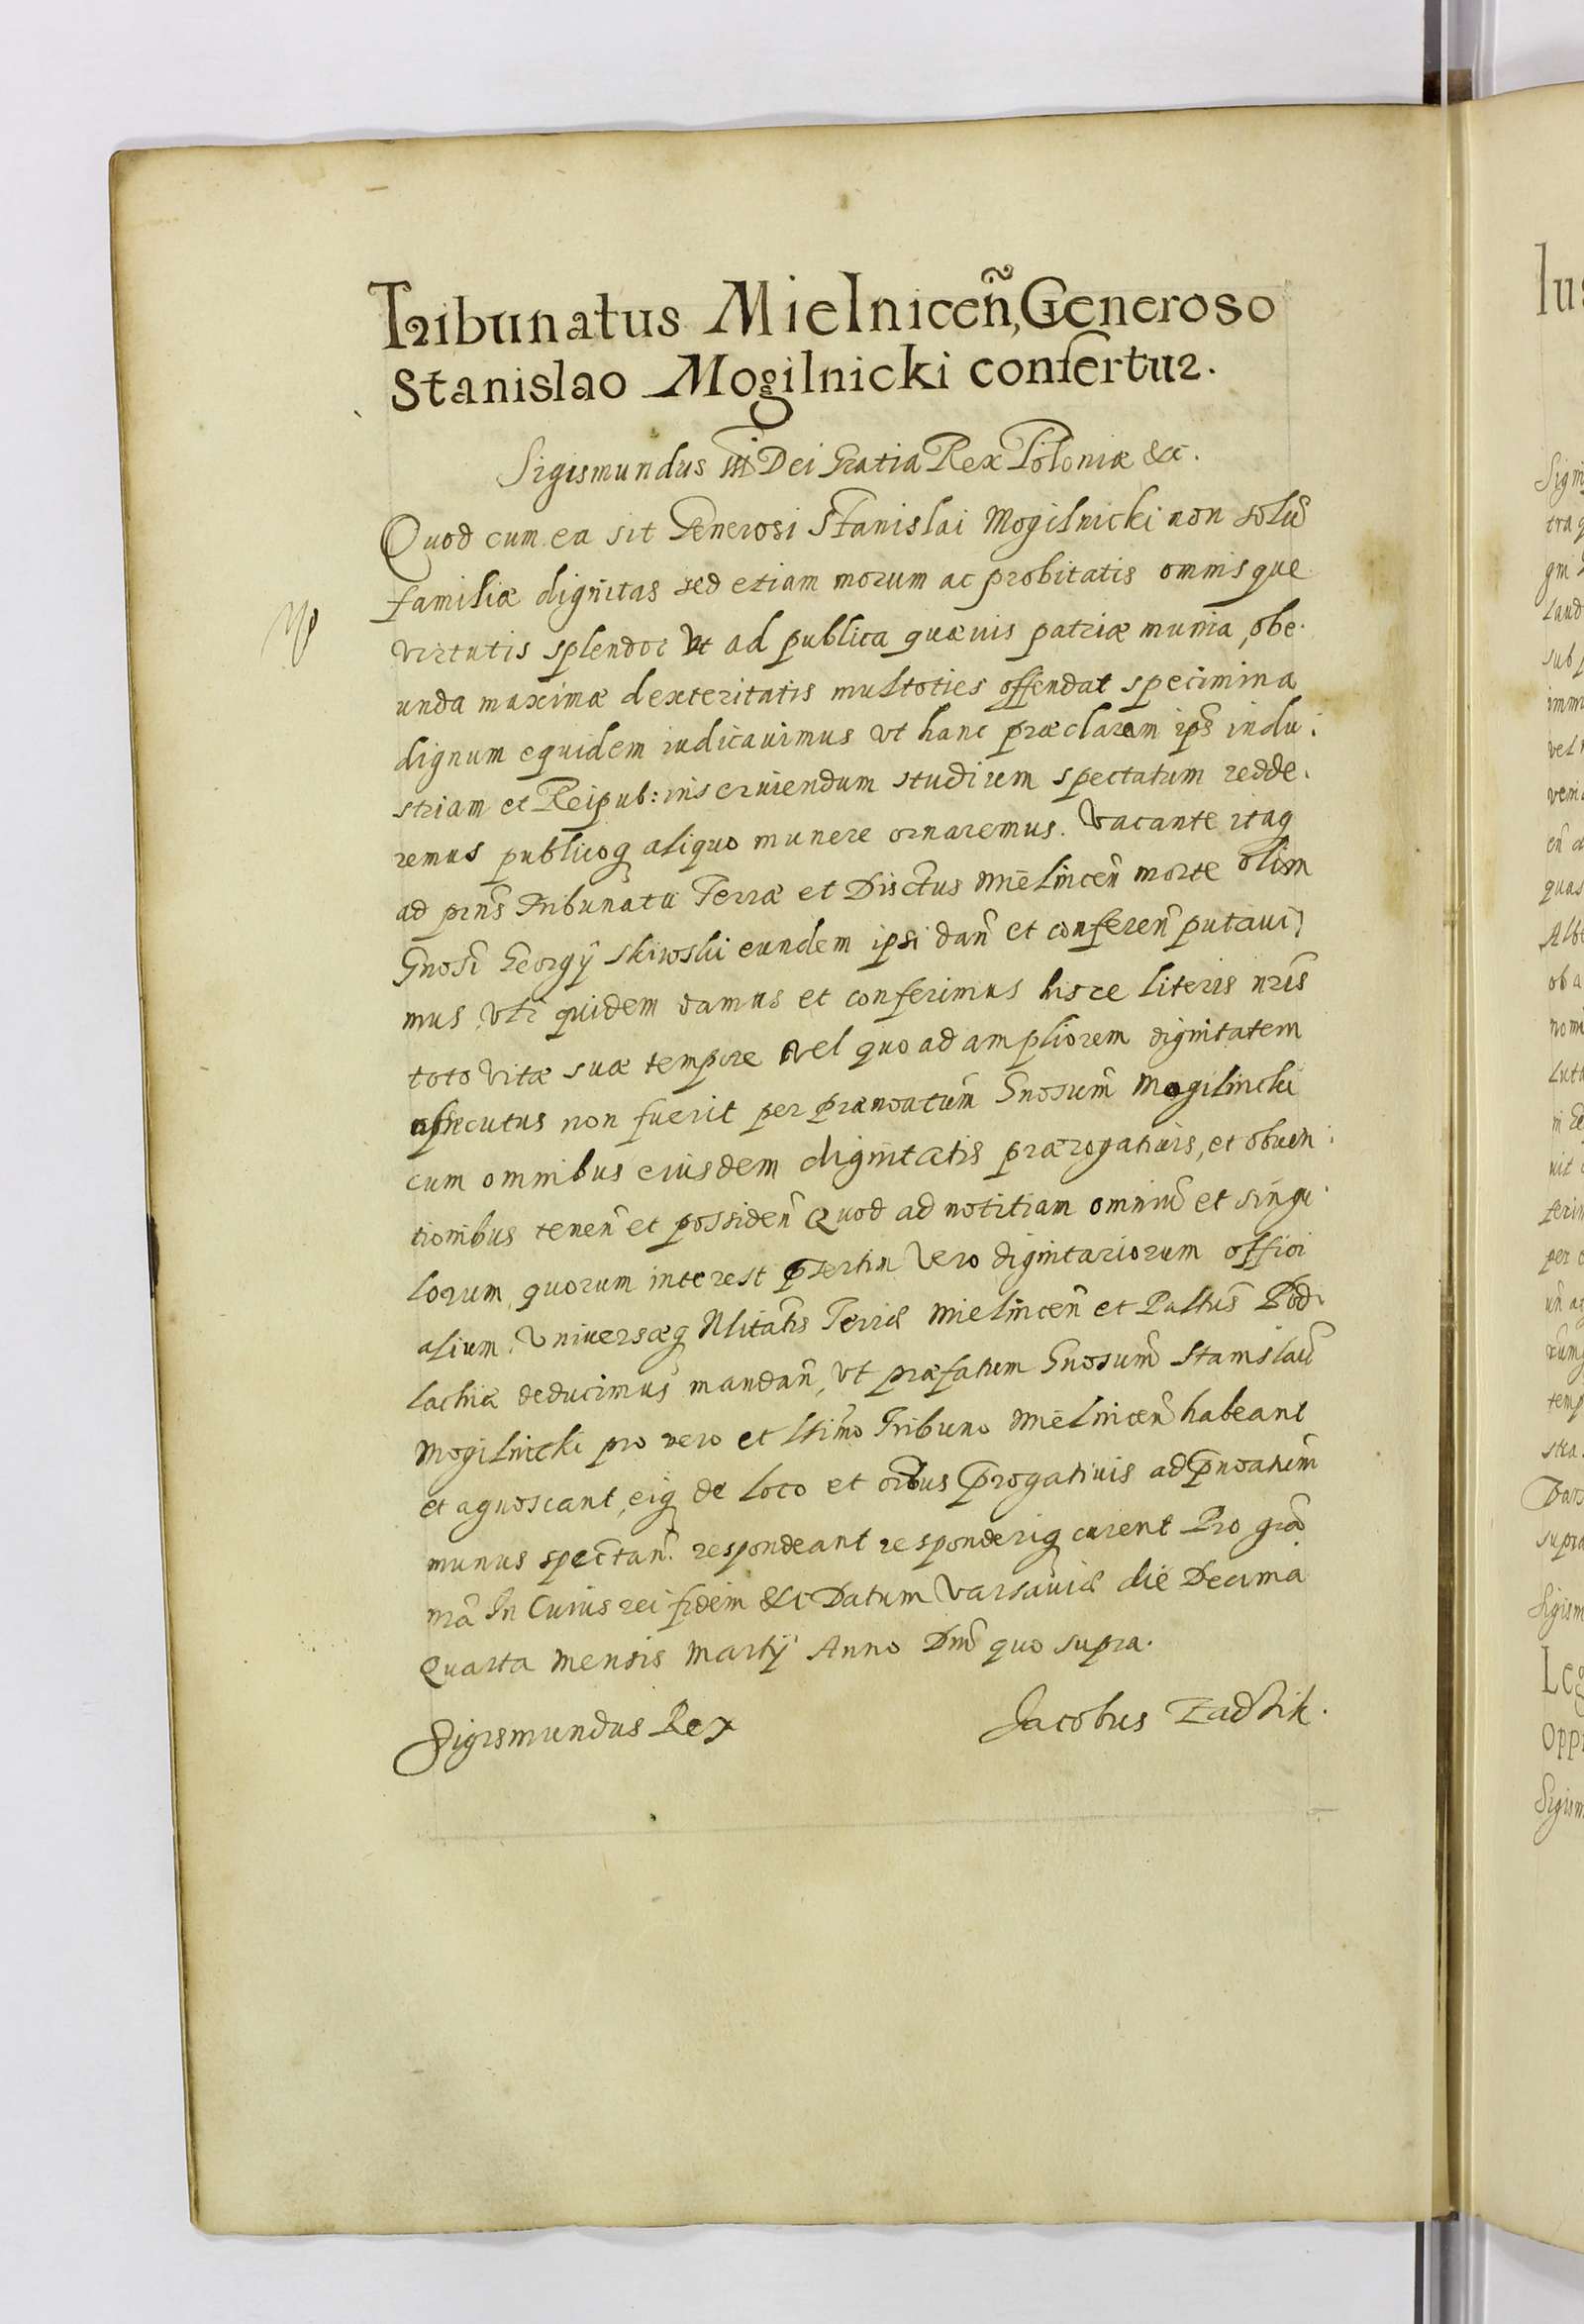 Tribunatus Mielniceñ, Generoso
Stanislao Mogilnicki confertur.
Sigismundus III Dei Gratia Rex Poloniæ &c.
Quod cum ea sit Generosi Stanislai Mogilnicki non solũ
familiæ dignitas sed etiam morum ac probitatis omnisque
virtutis splendor Vt ad publica quævis patriæ munia, obe.
unda maximæ dexteritatis multoties offendat specimina
dignum equidem iudicauimus vt hanc præclaram ips̃ indu.
striam et Reipub: inseruiendum studium spectatum redde.
remus publicoq aliquo munere ornaremus. Vacante itaq
ad prñs Tribunatu Terræ et Disctus Mielniceñ morte olim
Gnosi Georgÿ Skiwski eundem ipsi dañ et confereñ putaui
mus, Vti quidem damus et conferimus hisce literis nrĩs
toto vitæ suæ tempore vel quo ad ampliorem dignitatem
assecutus non fuerit per prænoatum̃ Gnosum̃ Mogilnicki
cum omnibus eiusdem dignitatis prærogatiuis, et obuen
tionibus teneñ et possideñ Quod ad notitiam omniũ et singu
lorum, quorum interest psertim Vero dignitariorum offici
alium, Vniversæq Nlitatĩs Terræ Mielniceñ et Paltus̃ Pod
lachiæ deducimus mandañ, Vt præfatum Gnosum̃ Stanislaũ
Mogilnicki pro vero et ltimõ Tribuno Mielniceñ habeant
et agnoscant, eiq de loco et oĩbus progatiuis ad pnoatum̃
munus spectañ. respondeant responderiq curent Pro grã
nrã In Cuius rei fidem &c Datum Varsauiæ die Decima
Quarta Mensis Martÿ Anno Dnĩ quo supra.
Sigismundus Rex Jacobus Zadzik.
lu
Sigi
tra
Laud
sub
imm
vel
quas
Alb
ob a
nomi
per
temp
supra
Sigism
Leg
Opp
Sigism